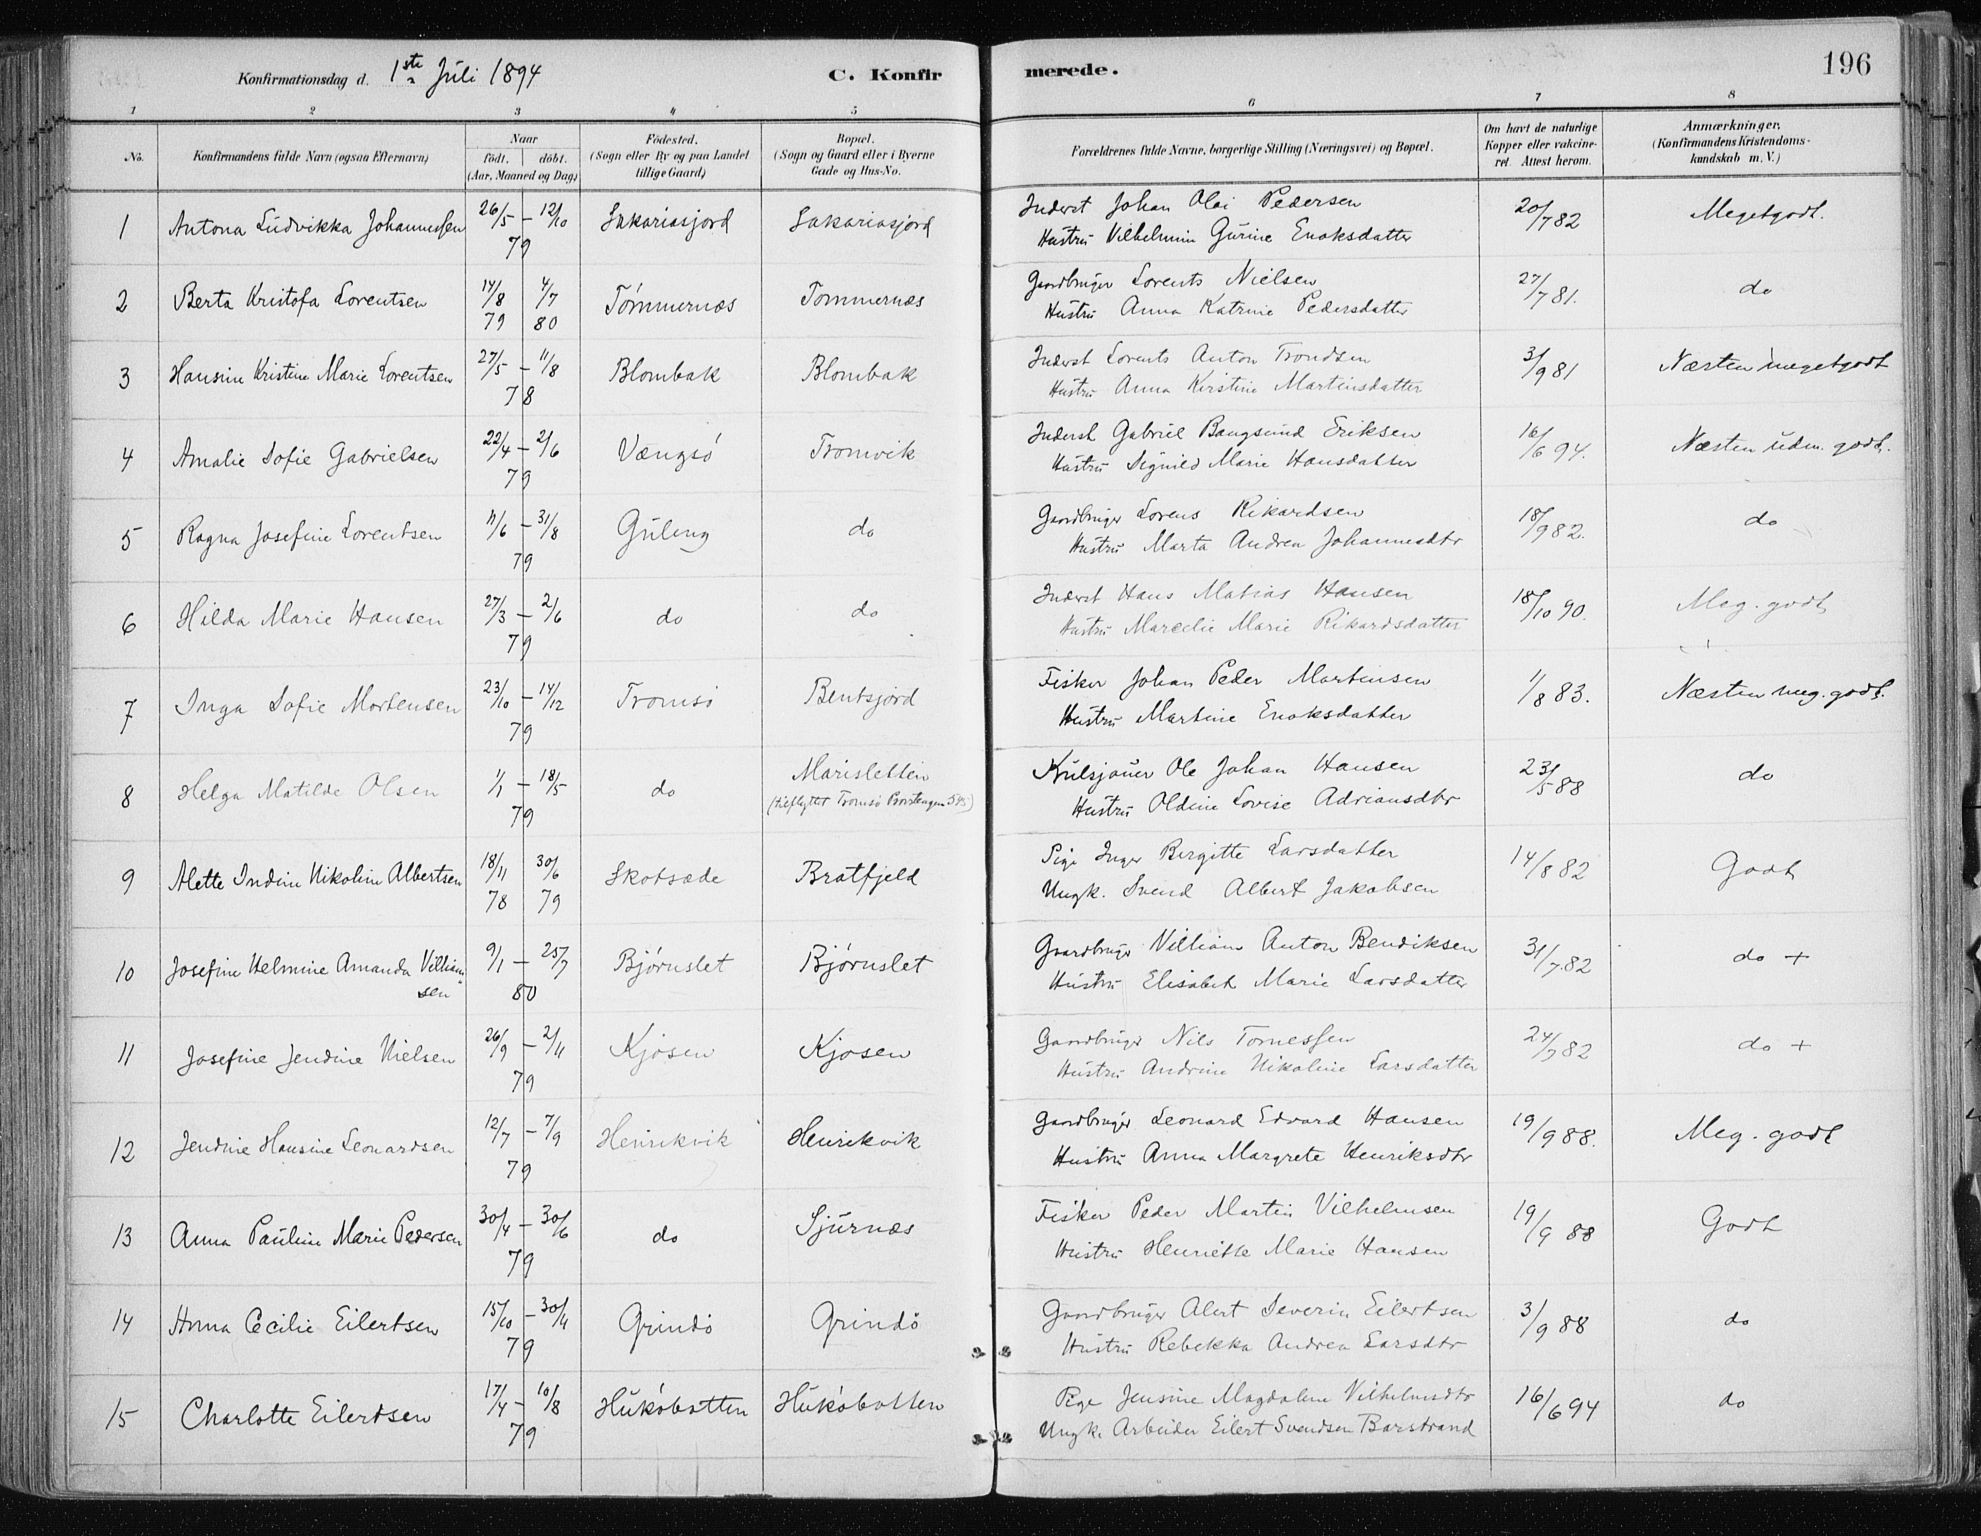 Konfirmationsdag d. 1ste Juli 1894
C. Konfirmerede.
196
1 2 3 4 5 6 7 8
No.
Konfirmandens fulde Navn (ogsaa Efternavn)
Naar
født. døbt.
(Aar, Maaned og Dag)
Fødested.
(Sogn eller By og paa Landet
tillige Gaard)
Bopæl.
(Sogn og Gaard eller i Byerne
Gade og Hus-No.
Forældrenes fulde Navne, borgerlige Stilling (Næringsvei) og Bopæl.
Om havt de naturlige
Kopper eller vakcine-
ret. Attest herom.
Anmærkninger.
(Konfirmandens Kristendoms-
kundskab m. V.)
1 Antona Ludvikka Johannessen 26/5 – 12/10 79 Sakariasjord Sakariasjord
Inderst Johan Olai Pedersen
Hustru Vilhelmin Gurine Enoksdatter
20/7 82 Megetgodt.
2 Berta Kristofa Lorentsen 14/8 79 4/7 80 Tømmernæs Tommernæs
Gaardbruger Lorents Nielsen
Hustru Anna Katrine Pedersdatter
27/7 81. do
3 Hansine Kristine Marie Lorentsen 27/5 – 11/8 78 Blombak Blombak
Inderst Lorents Anton Trondsen
Hustru Anna Kirstine Martinsdatter
3/9 81 Næsten megetgodt
4 Amalie Sofie Gabrielsen 22/4 – 2/6 79 Vængsö Tromvik
Inderst Gabriel Bangsund Eriksen
Hustru Signild Marie Hansdatter
16/6 94. Næsten udm. godt.
5 Ragna Josefine Lorentsen 11/6 – 31/8 79 Guleng do
Gaardbruger Lorens Rikardsen
Hustru Marta Andrea Johannesdtr
18/9 82. do
6 Hilda Marie Hansen 27/3 – 2/6 79 do do
Inderst Hans Matias Hansen
Hustru Marcelie Marie Rikardsdatter
18/10 90. Meg. godt
7 Inga Sofie Mortensen 23/10 – 14/12 79 Tromsö Bentsjord
Fisker Johan Peder Martinsen
Hustru Martine Enoksdatter
1/8 83. Næsten meg. godt.
8 Helga Matilde Olsen 1/1 – 18/5 79 do Marisletten
(tilflyttet Tromsö
Kulsjauer Ole Johan Hansen
Hustru Oldine Lovise Adriansdtr
23/5 88 do
9 Alette Indine Nikoline Albertsen 18/11 78 30/6 79 Skotsæde Bratfjeld
Pige Inger Birgitte Larsdatter
Ungk. Svend Albert Jakobsen
14/8 82 Godt
10 Josefine Helmine Amanda Villiam-
sen 9/1 – 25/7 80 Bjørnslet Bjørnslet
Gaardbruger Villiam Anton Bendiksen
Hustru Elisabet Marie Larsdatter
31/7 82 do +
11 Josefine Jendine Nielsen 26/9 – 2/11 79 Kjosen Kjosen
Gaardbruger Nils Tornessen
Hustru Andrine Nikoline Larsdatter
24/7 82 do +
12 Jendine Hansine Leonardsen 12/7 – 7/9 79 Henrikvik Henrikvik
Gaardbruger Leonard Edvard Hansen
Hustru Anna Margrete Henriksdtr
19/9 88. Meg. godt
13 Anna Pauline Marie Pedersen 30/4 – 30/6 79 do Sjurnæs
Fisker Peder Martin Vilhelmsen
Hustru Henriette Marie Hansen
19/9 88 Godt
14 Anna Cecilie Eilertsen 15/10 – 30/11 79 Grindö Grindö
Gaardbruger Alert Severin Eilertsen
Hustru Rebekka Andrea Larsdtr
3/9 88 do
15 Charlotte Eilertsen 17/4 – 10/8 79 Hukøbotten Hukøbotten
Pige Jensine Magdalene Vilhelmsdtr
Ungk. Arbeider Eilert Svendsen Barstrand
16/6 94 do